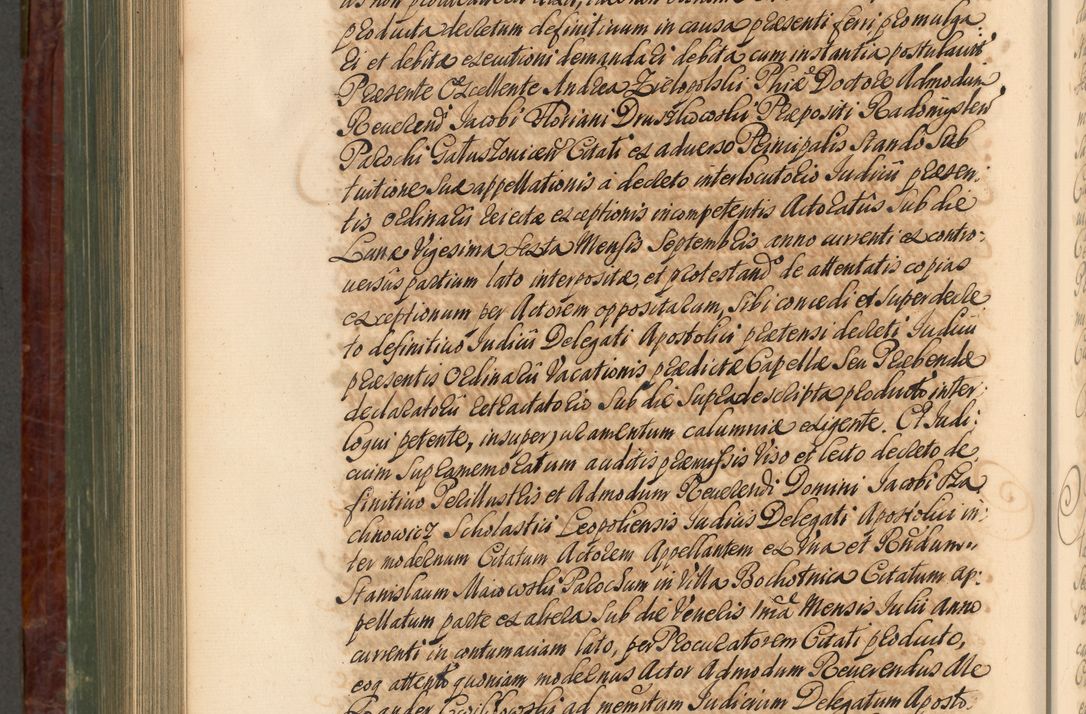 producta decretum definitivum in causa præsenti ferri promulga:
ri et debitæ executioni demandari debita cum instantia postulavit
Præsente Excellente Andrea Zielopolski Phiæ Doctore Admodum
Reverendi Jacobi Floriani Drusłkowski Præpositi Radomyslen
Parochi Gatuszovicen Citati ex adverso Principalis stando sub
tuitione suæ appellationis à decreto interlocutorio Judicii præsen:
tis Ordinarii reiectæ exceptionis incompetentis Actoratûs sub die
Lunæ Vigesima Sexta Mensis Septembris anno currenti ex contro:
versiis partium lato interpositæ, et protestand de attentatis copias
exceptionum per Actorem oppositarum, sibi concedi et super decre
to definitivo Judicii Delegati Apostolici prætensi decreti Judicii
præsentis Ordinarii Vacationis prædictæ Capellæ seu Præbendæ
declaratorii retractatorio sub die supra descripta producto inter
loqui petente, insuper juramentum calumniæ exigente. Et Judi:
cium supramemoratum auditis præmissis viso et lecto decreto de
finitivo Perillustris et Admodum Reverendi Domini Jacobi
chnowicz Scholastici Leopoliensis Judicis Delegati Apostolici in:
ter modernum Citatum Actorem Appellantem ex Una et Rndum
Stanislaum Maiowski Parochum in Villa Bochotnica Citatum ap:
pellatum parte ex altera sub die Veneris 1ma Mensis Julii anno
currenti in contumaciam lato, per Procuratorem Citati producto,
eoq attento quoniam modernus Actor Admodum Reverendus Ale
xander ad memitam Judicium Delegatum Aposto: